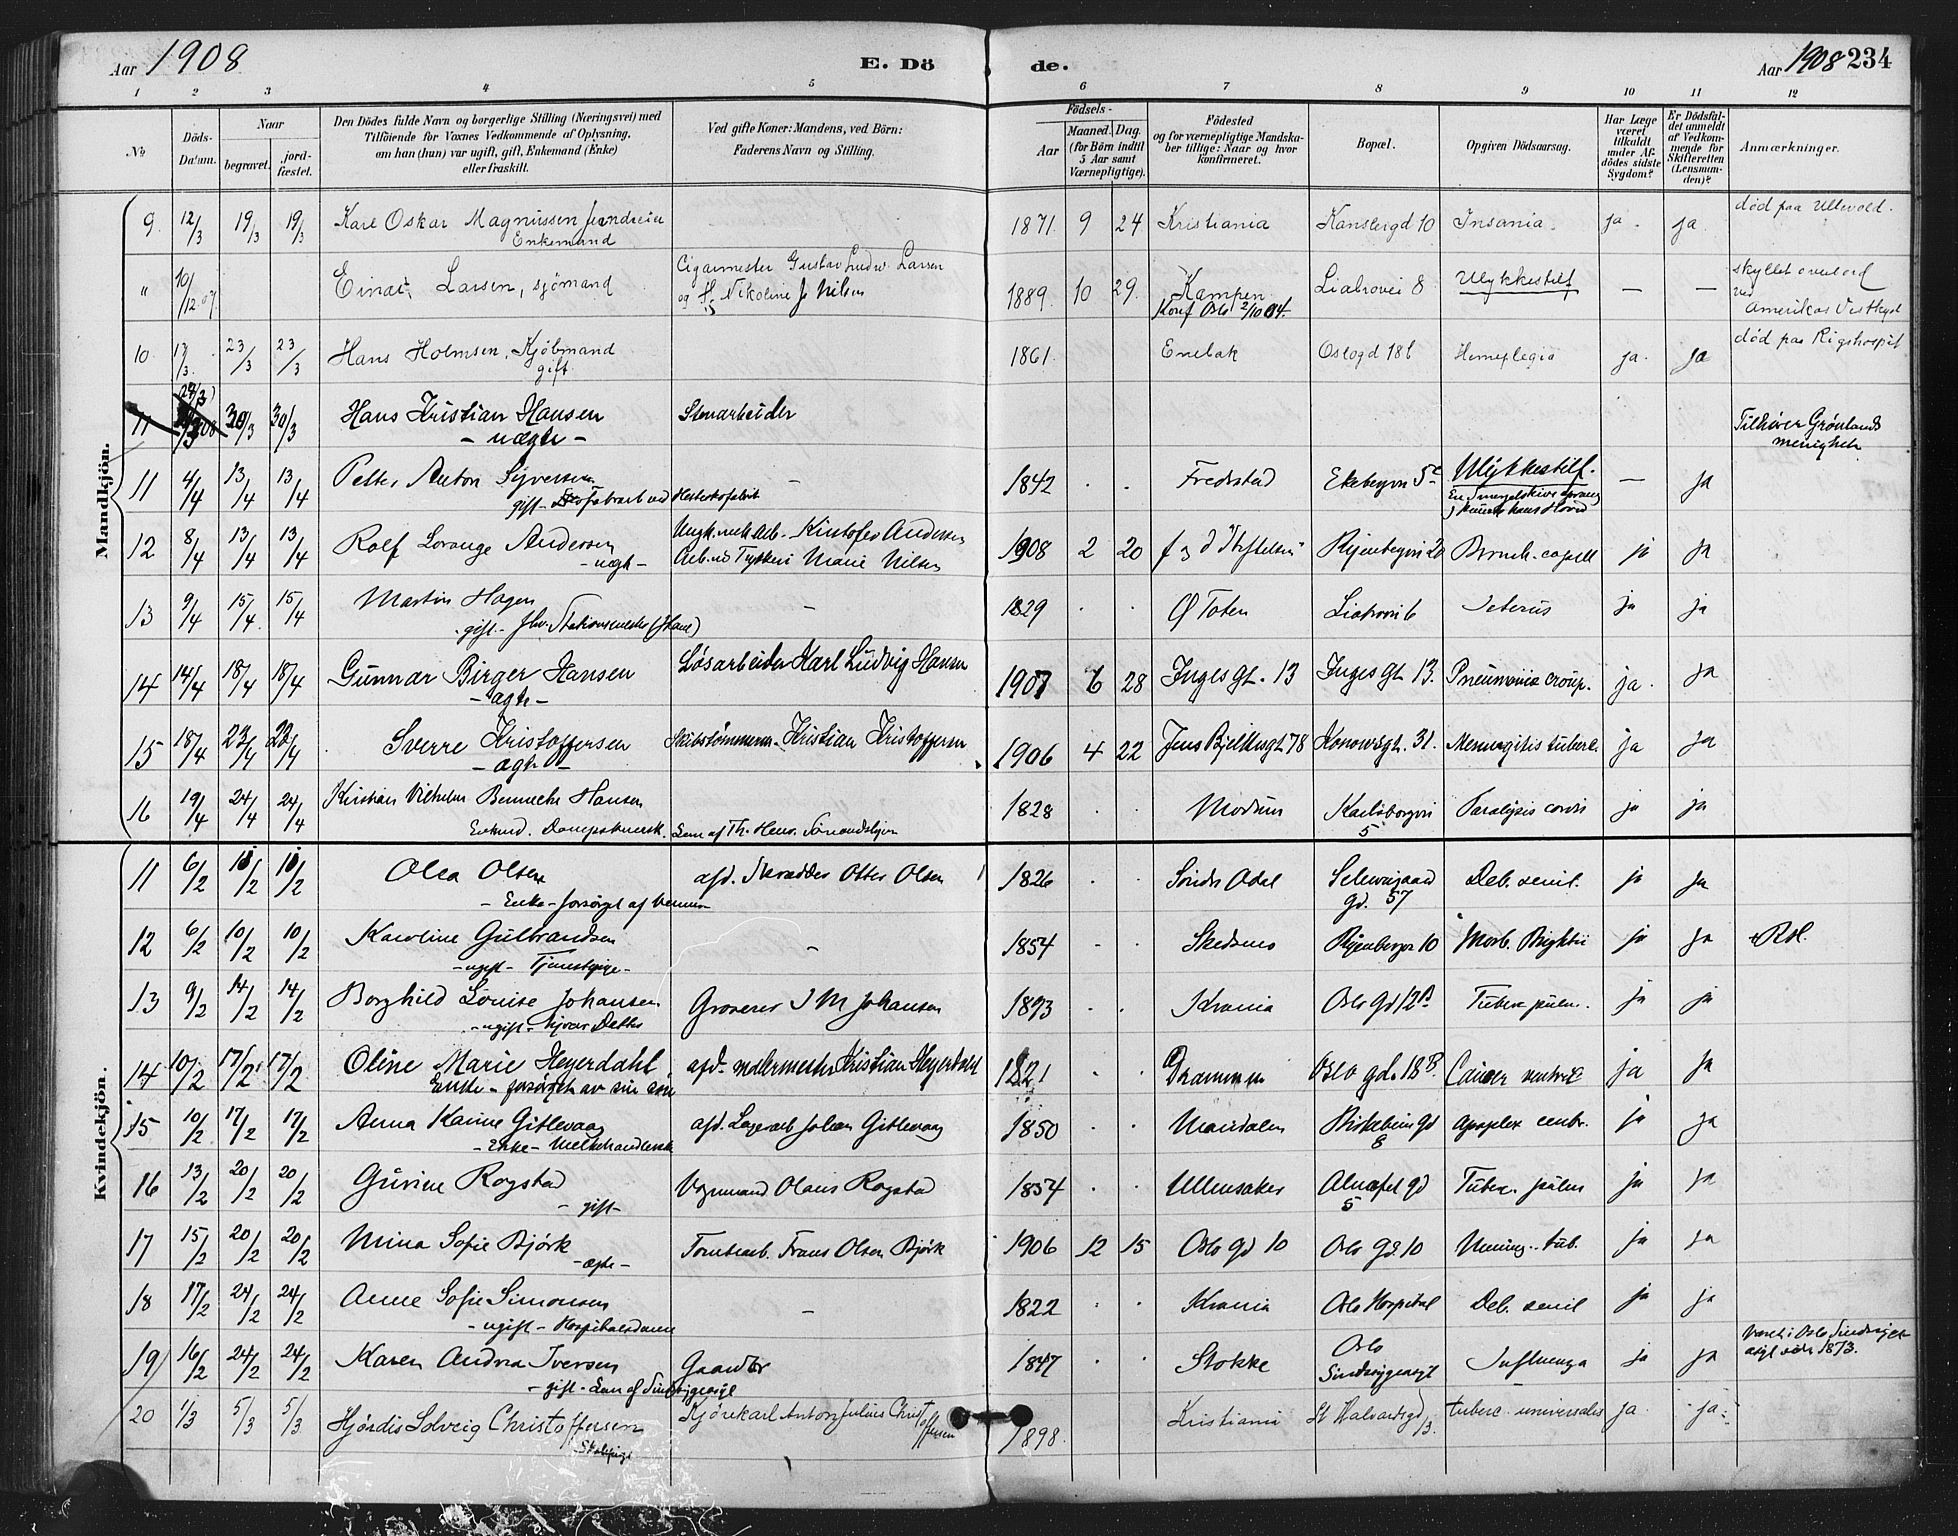 Aar 1908 E. Döde. Aar 1908 234
1 2 3 4 5 6 7 8 9 10 11 12
No
Döds-Datum.
Naar
begravet.
jord-fæstet.
Den Dödes fulde Navn og borgerlige Stilling (Næringsvei) med
Tilföiende for Voxnes Vedkommende af Oplysning,
om han (hun) var ugift, gift, Enkemand (Enke)
eller fraskilt.
Ved gifte Koner: Mandens, ved Börn:
Faderens Navn og Stilling.
Födsels-
Aar
Maaned. Dag.
(for Börn indtil
5 Aar samt
Værnepligtige).
Födested
og for værnepligtige Mandska-
ber tillige: Naar og hvor
konfirmeret.
Bopæl.
Opgiven Dödsaarsag.
Har Læge
været
tilkaldt
under Af-
dödes sidste
Sygdom?
Er Dödsfal-
det anmeldt
af Vedkom-
mende for
Skifteretten
(Lensman-
den)?
Anmærkninger.
Mandkjön.
9. 12/3 19/3 19/3 Karl Oskar Magnussen 1871. 9 24 Kristiania 10 Insania. ja. ja. död paa Ullevold.
Enkemand
" 10/12.07. Einar Larsen, sjömand Cigarmester Gustav Ludv. Larsen 1889. 10 29. Kampen Liabrovei 8 Ulykkestilf — — skyllet overbord
og Nikoline J. Nilsen Konf Oslo 2/10 04. ved
Amerikas Vestkyst
10. 23/3 23/3 Hans Holmsen, Kjöbmand 1861. Enebak Oslogd 18b Hemeplegia ja. ja död paa Rigshospit
gift.
11 30/3 30/3 Hans Kristian Hansen Stenarbeider Tilhörer Grönlands
– uægte – menighet
11 4/4 13/4 13/4 Petter Anton Syversen – 1842 . . Fredrstad Ekebergvn 5 Ulykkestilf. — ja
gift
12 8/4 13/4 13/4 Rolf Lorange Andersen Andersen 1908 2 20 20 Bronch. capill ja ja
– uegte – Marie Nilsen
13 9/4 15/4 15/4 Martin Hagen – 1829 . . Ø Toten Liabrovei 6 Icterus ja ja
gift. fhv. Stationsmester
14 14/4 18/4 18/4 Gunnar Birger Hansen Løsarbeider Karl Ludvig Hansen 1907 6 28 Inges Gt. 13 Inges Gt 13. Pneumonia croup. ja. ja
– ægte –
15 18/4 23/4 23/4 Sverre Kristoffersen Skibstömmerm. Kristian Kristoffersen 1906 4 22 Jens Bjelkes gt 78 Konowsgt. 31. Meningitis tuberc. ja ja
– ægte –
16 19/4 24/4 24/4 Kristian Vilhelm Bennecke Hansen 1828 . . Modum Karlsborgvn 5 Paralysis cordis ja ja
Kvindekjön.
11 6/2 10/2 10/2 Olea Olsen afd. Skrædder Otter Olsen 1826 . . Söndr Odal Schweigaard Deb. senil. ja ja
– Enke – forsörget af gd. 57
12 6/2 10/2 10/2 Karoline Gulbrandsen – 1854 . . Skedsmo Ryenbergvn 10 Morb. Brightii ja ja
– ugift – Tjenestpige –
13 9/2 14/2 14/2 Borghild Louise Johansen Groserer I M Johansen 1893 . . Krania Oslo Gd 12 B Tuberc pulm. ja ja
– ugift – hjvær. Datter
14 10/2 17/2 17/2 Oline Marie Heyerdahl afd. møllermester Kristian Heyerdahl 1821 . . Drammen Oslo gd. 18 B. Cancer ventric ja ja
Enke – forsørget av sin søn
15 10/2 17/2 17/2 Anna Karine Gitlevaag afd. Lagerarb Johan Gitlevaag 1850 . . Mandalen Birkebeinergd 8 Apoplex cerebr. ja ja
– Enke – Melkehandlerske
16 13/2 20/2 20/2 Gurine Rogstad Vognmand Olaus Rogstad 1854 . . Ullensaker gd 5 Tuberc. pulm ja ja
– gift –
17 15/2 20/2 20/2 Mina Sofie Björk Tomtearb. Frans Olsen Björk 1906 12 15 Oslo gd 10 Oslo Gd 10 Mening. tub. ja ja
– ægte –
18 17/2 24/2 24/2 Anne Sofie Simonsen – 1822 . . Krania Oslo Hospital Deb. senil ja ja
– ugift – Hospitalsdame
19 16/2 24/2 24/2 Karen Andrea Iversen Gaardbr 1847 Stokke Oslo Influenza ja ja Været i Oslo Sindssyge
– gift – Lem af Sindssygeasyl Sindssygeasyl asyl siden 1873.
20 1/3 5/3 5/3 Hjördis Solveig Christoffersen Kjörekarl Anton Julius Christoffersen 1898. Kristiania St Halvardsgd 13. tuberc. universalis ja. ja.
Skolepige